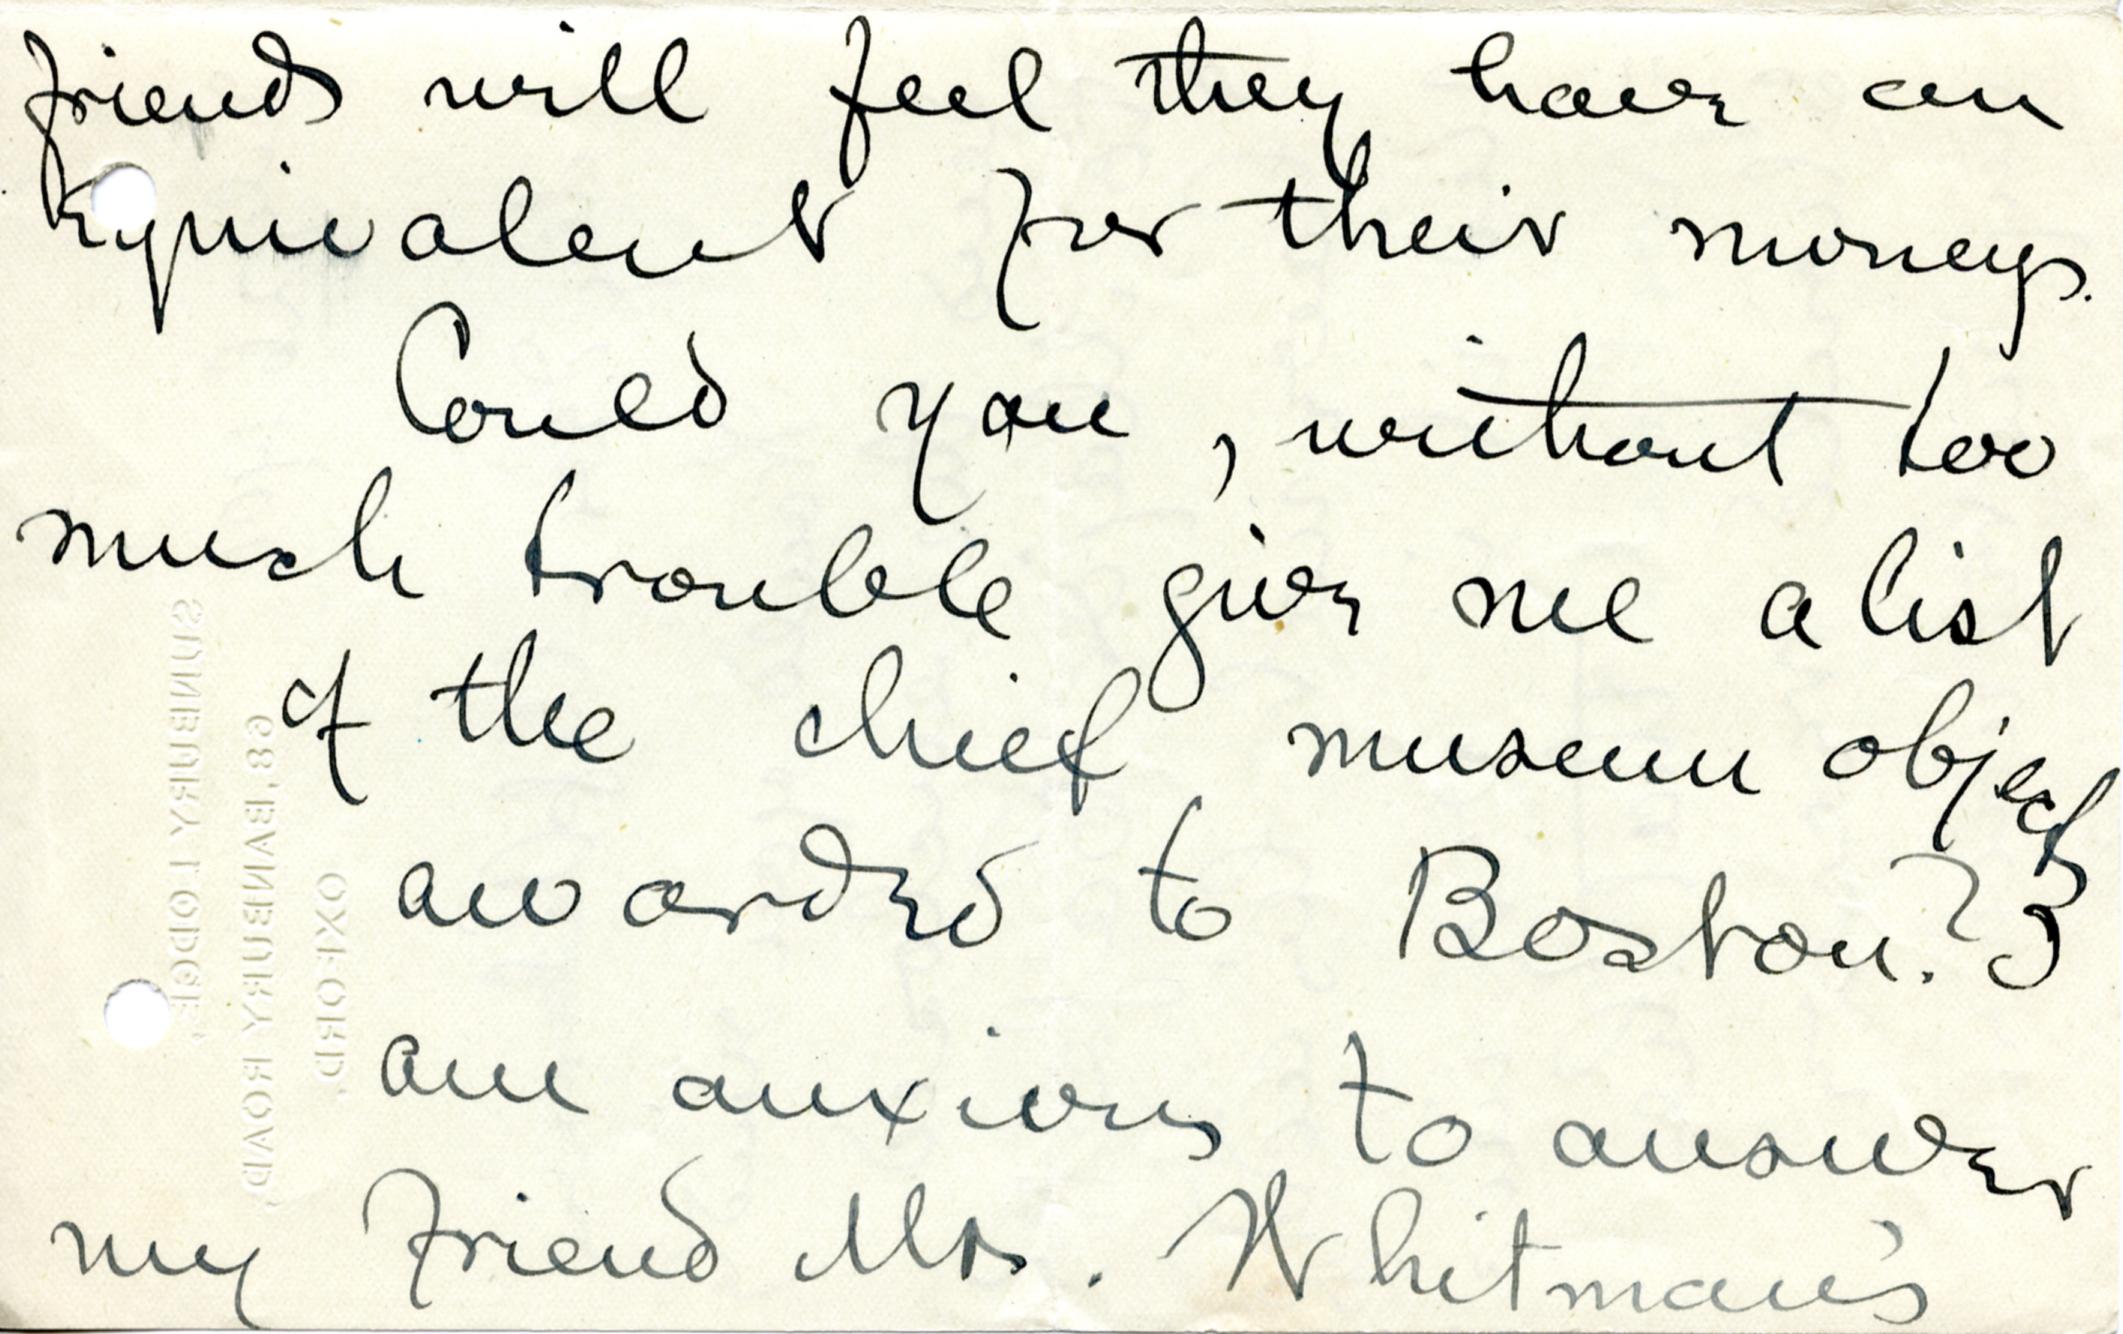 friends will feel they have an
Equivalent for their moneys.
Could you, without too
much trouble give me a list
of the chief museum objects
awarded to Boston? I
am anxious to answer
my friend Mrs. Whitman's
SUNBURY LODGE,
68, BANBURY ROAD,
OXFORD.